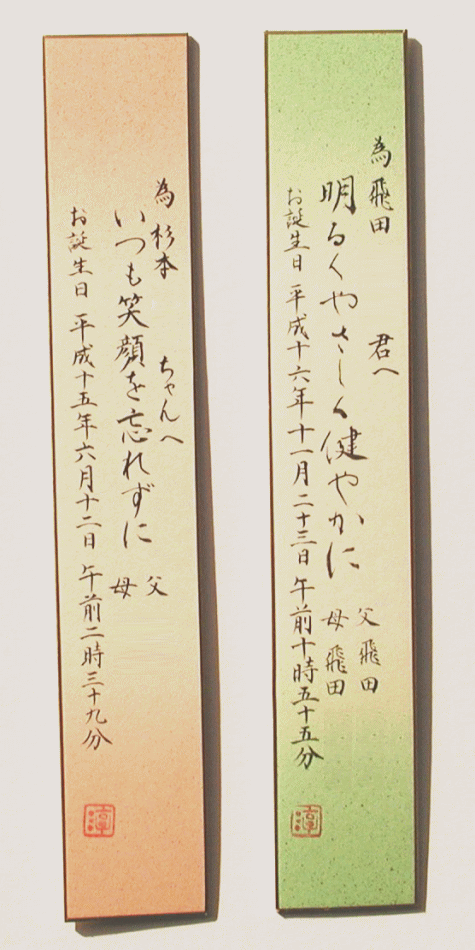 為飛田 君へ
明るくやさしく健やかに
父 飛田
母 飛田
お誕生日 平成十六年十一月二十三日 午前十時五十五分
為 杉本 ちゃんへ
いつも笑顔を忘れずに
父
母
お誕生日 平成十五年六月十二日 午前二時三十九分